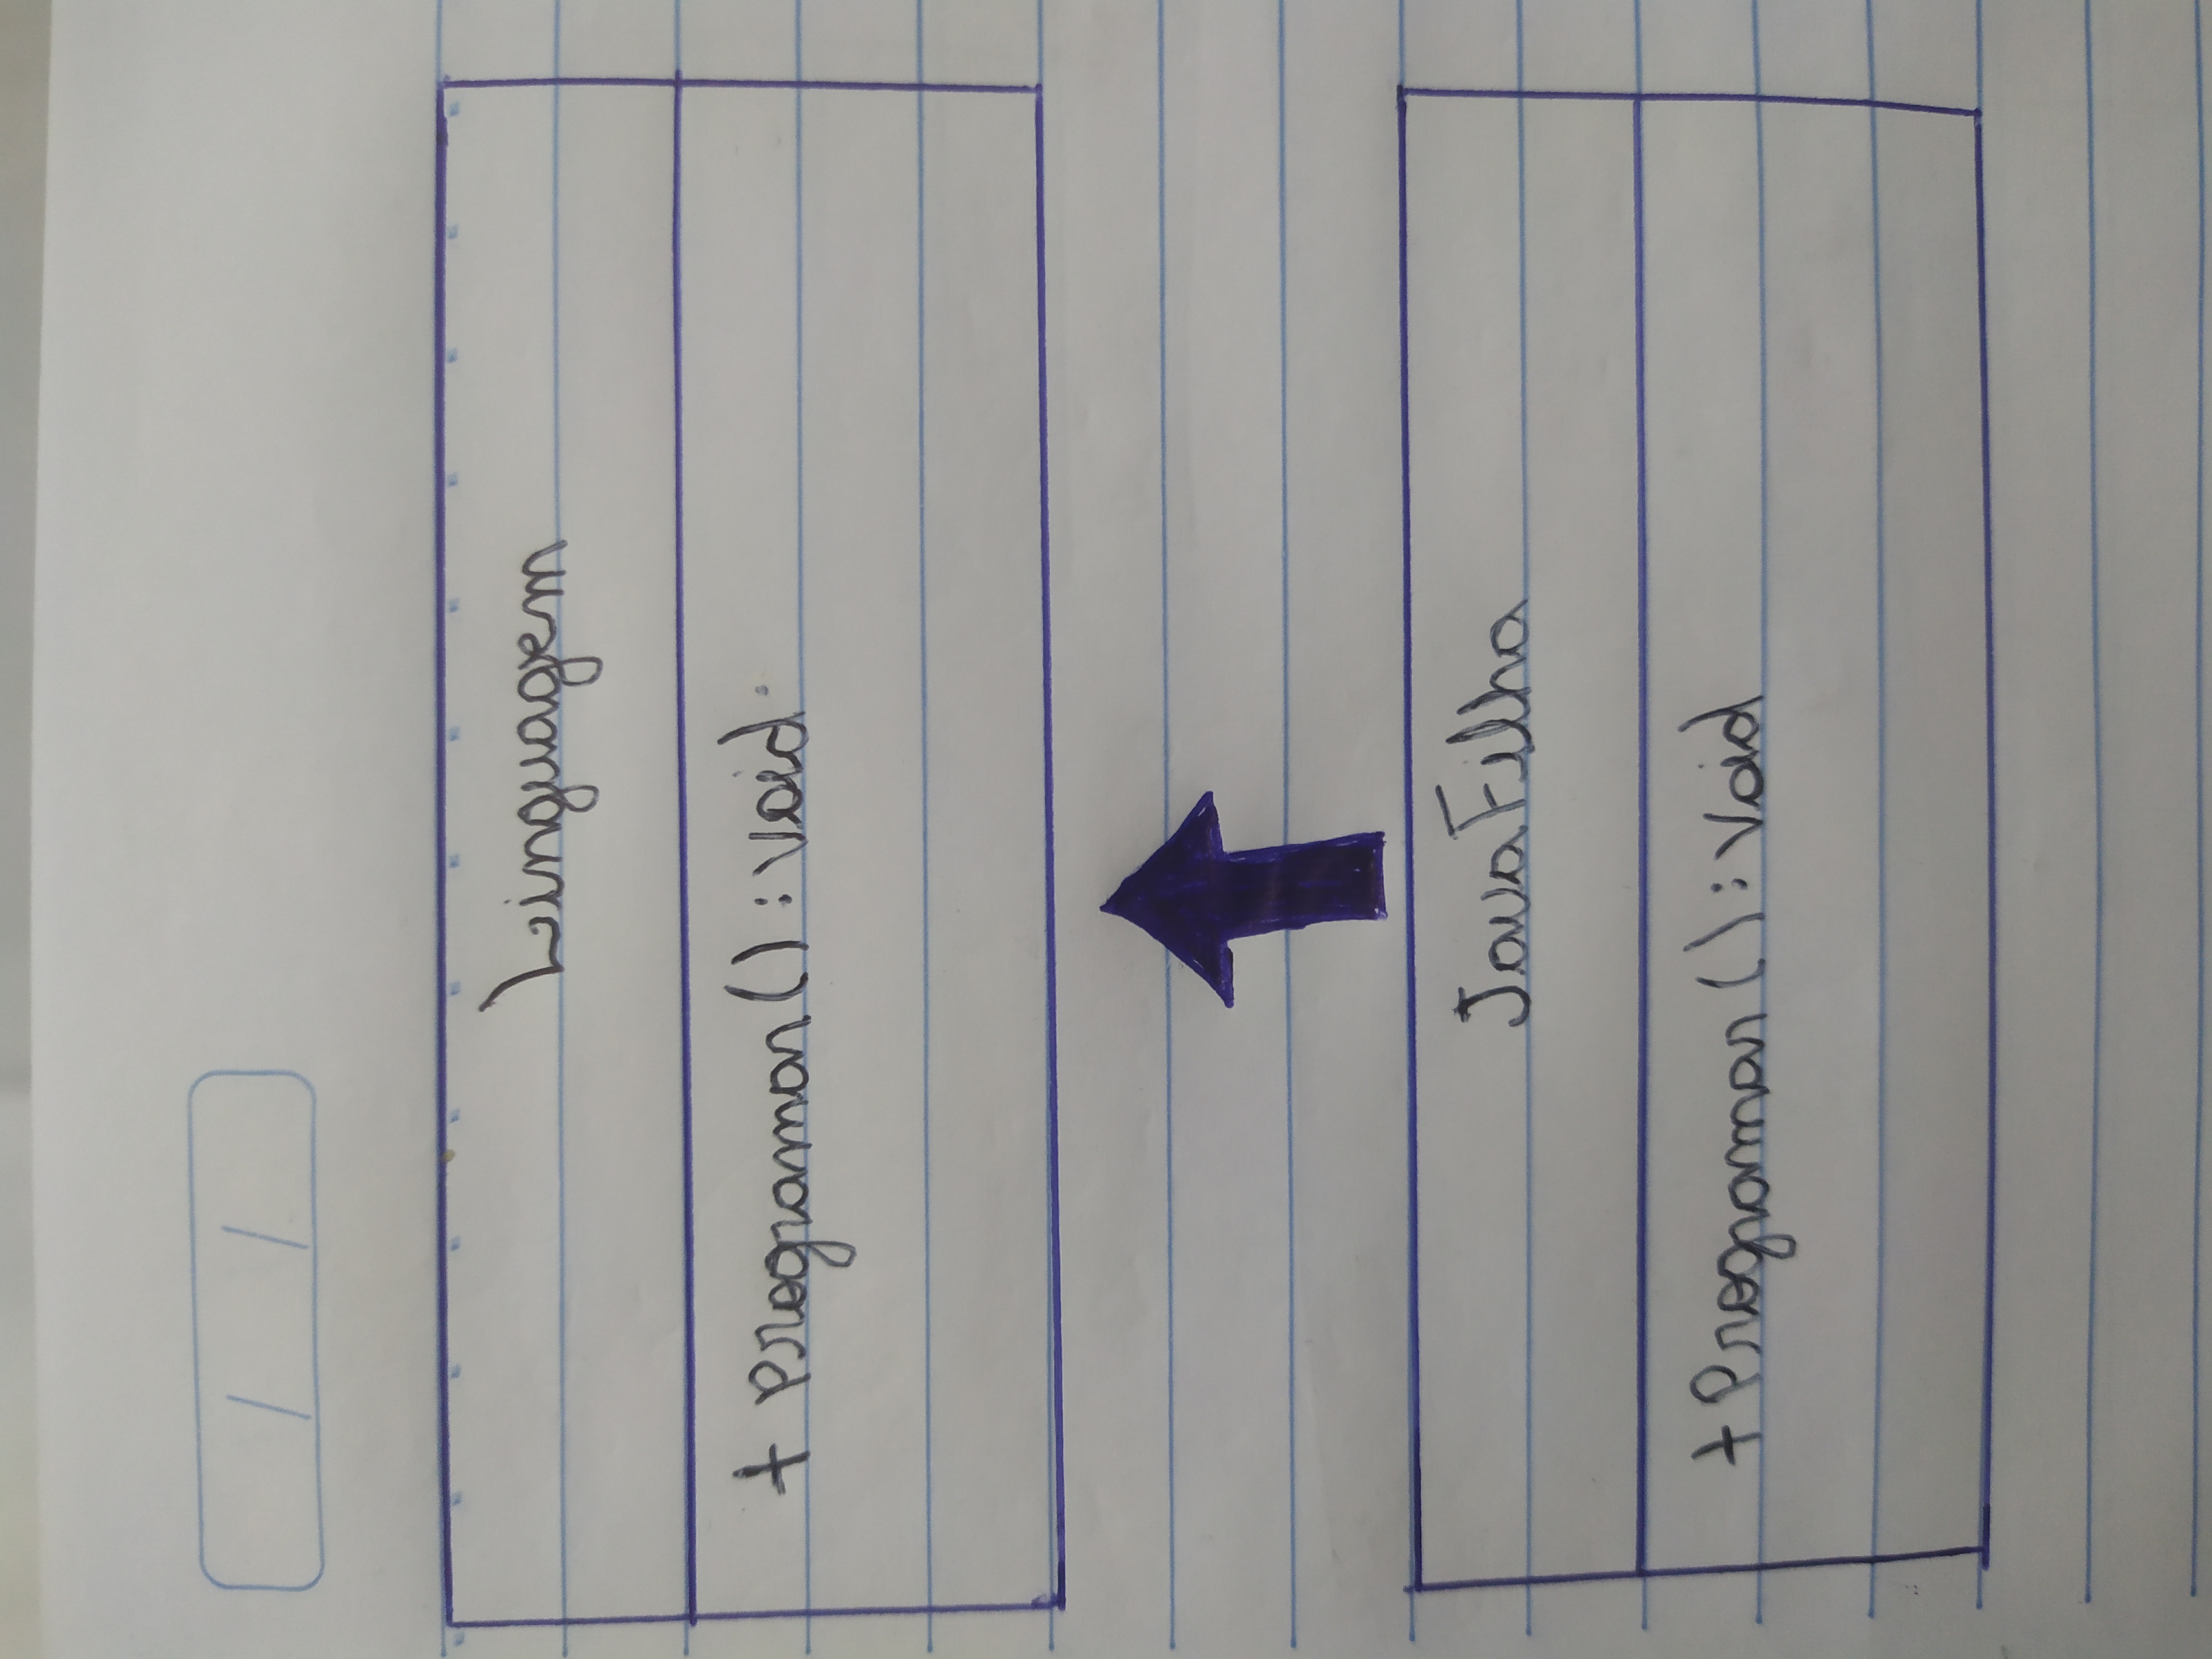 / /
Linguagem
+ programar() : void
JavaFilha
+ Programar() : void